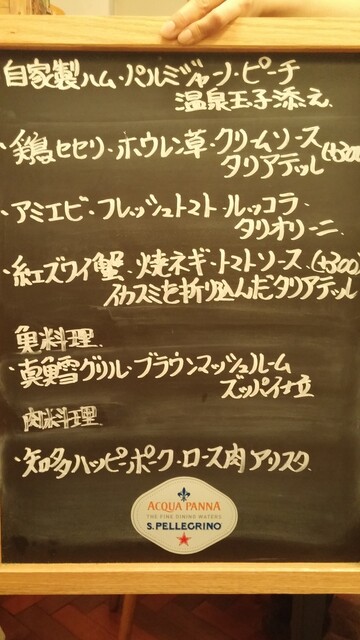 自家製ハム・パルミジャーノ・ピーチ
温泉玉子添え
・鶏セセリ・ホウレン草・クリームソース
タリアテッレ (+300
・アミエビ・フレッシュトマト ルッコラ
タリオリーニ
・紅ズワイ蟹・焼ネギ・トマトソース (+300
イカスミを折り込んだタリアテッレ
魚料理
・真鱈グリル・ブラウンマッシュルーム
ズッパ仕立
肉料理
・知多ハッピーポーク・ロース肉アリスタ
ACQUA PANNA
THE FINE DINING WATERS
S.PELLEGRINO